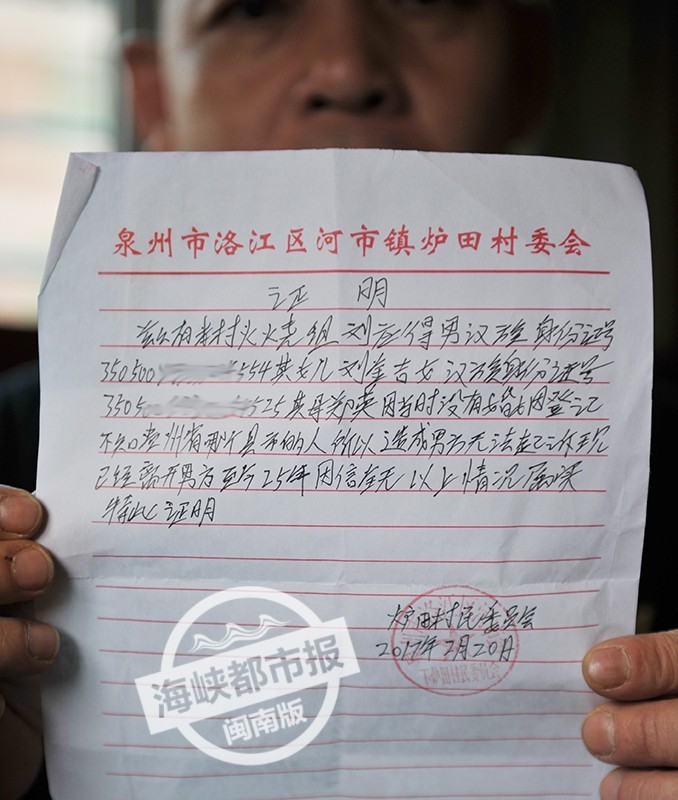 泉州市洛江区河市镇炉田村委会
证 明
兹有本村火烧组刘应得男汉族身份证号
350500 554其女儿刘幸吉女汉族身份证号
3505 525其母郑英因当时没有婚姻登记
不知贵州省哪个县市的人所以造成男方无法
已经离开男方至今25年因信全无以上情况属实
特此证明
炉田村民委员会
2017年2月20日
海峡都市报
闽南版